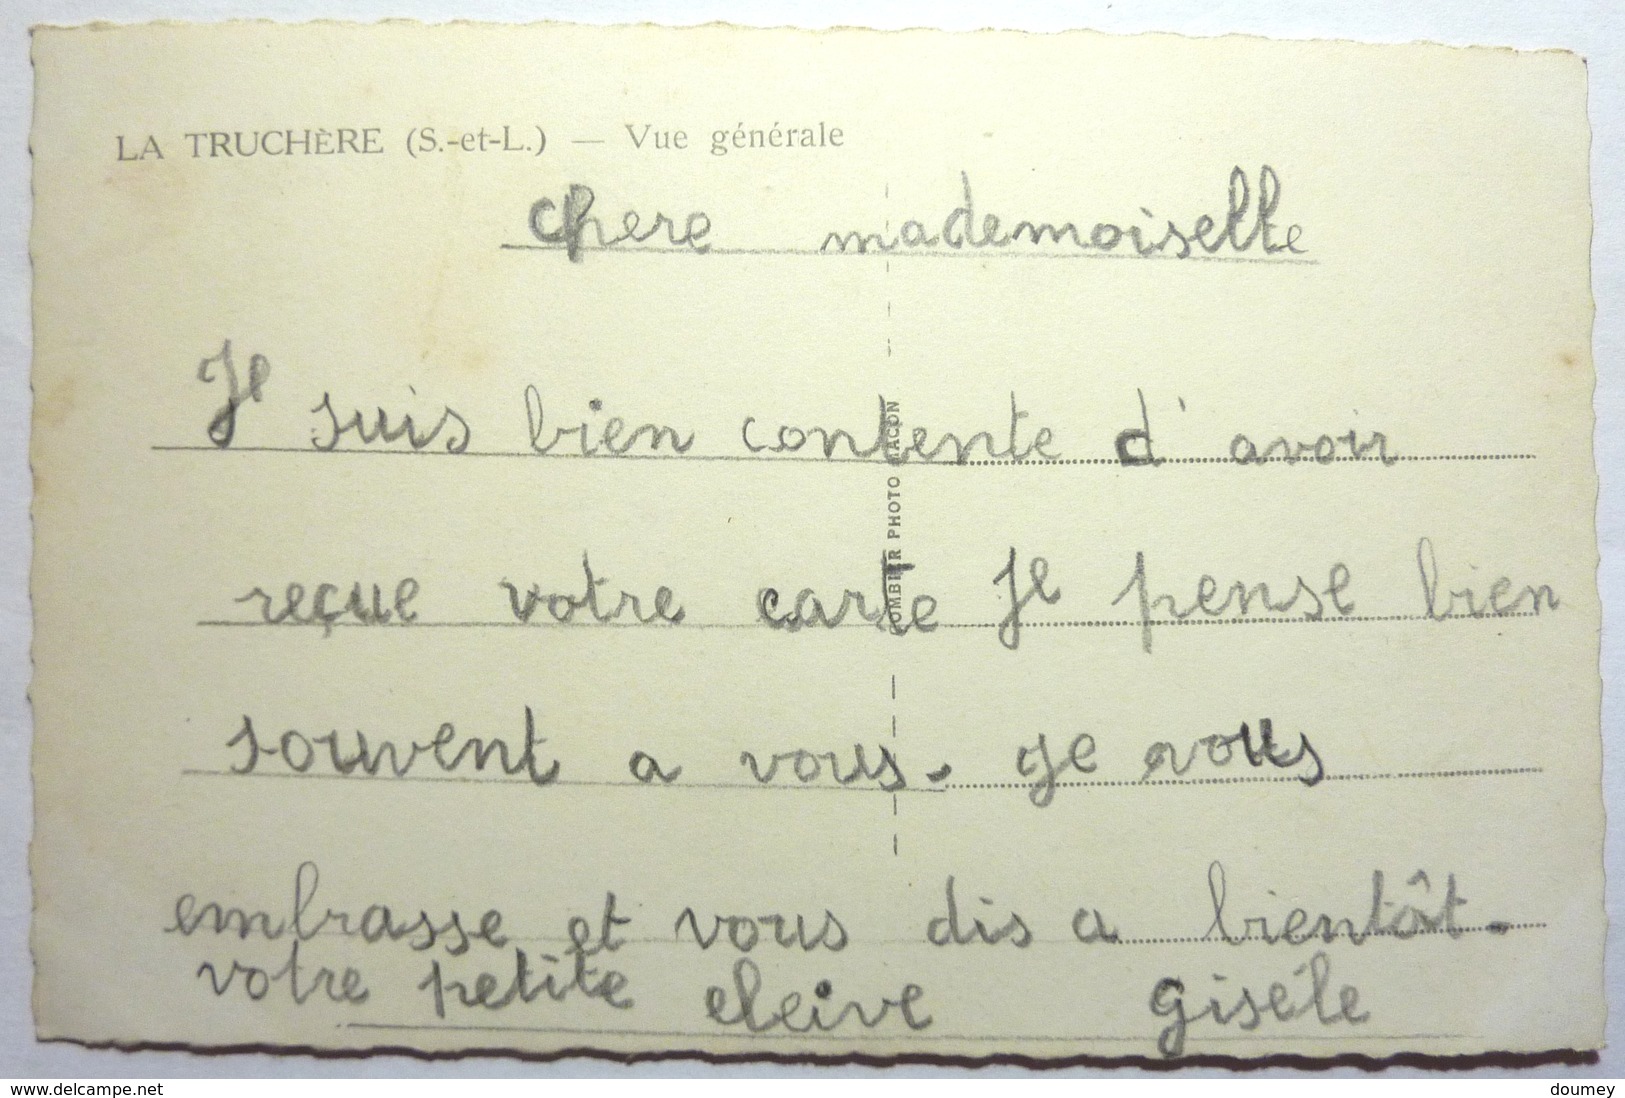 LA TRUCHÈRE (S.-et-L.) — Vue générale
chere mademoiselle
Je suis bien contente d'avoir
reçue votre carte Je pense bien
souvent a vous. je vous
embrasse et vous dis a bientôt.
votre petite eleive giséle
COMBIER PHOTO MACON
www.delcampe.net
doumey